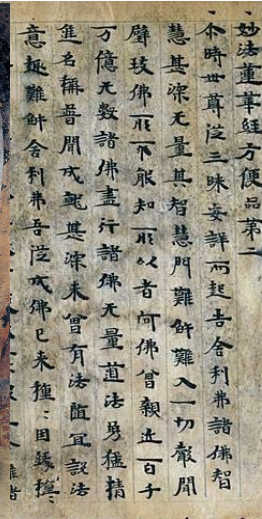 妙法蓮華經方便品第二
尒時世尊從三昧安詳而起告舍利弗諸佛智
慧甚深无量其智慧門難解難入一切聲聞
辟支佛所不能知所以者何佛曾親近百千
万億无數諸佛盡行諸佛无量道法勇猛精
進名稱普聞成就甚深未曾有法隨宜說法
意趣難解舍利弗吾從成佛已来種〻因緣種〻